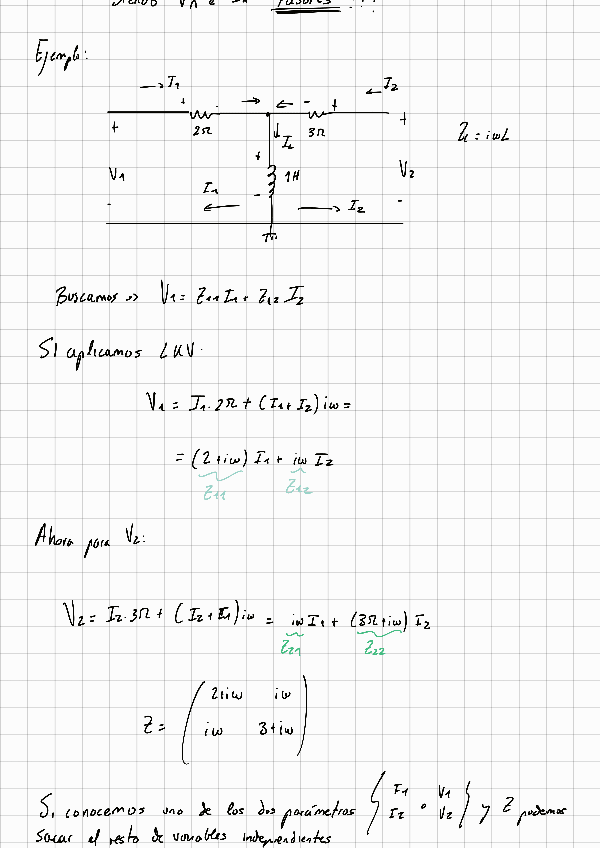 siendo V1 e I1 fasores
Ejemplo:
→ I1
← I2
+ → ← - +
2Ω 3Ω
+ ↓ I2 +
Z = iωL
V1 + 1H V2
I1 -
- ← → I2 -
Buscamos => V1 = Z11 I1 + Z12 I2
Si aplicamos LKV.
V1 = I1·2Ω + (I1+I2)iω =
= (2+iω) I1 + iω I2
Z11 Z12
Ahora para V2:
V2 = I2·3Ω + (I2+I1)iω = iω I1 + (3Ω+iω) I2
Z21 Z22
Z = ( 2+iω iω
iω 3+iω )
Si conocemos uno de los dos parámetros { I1 I2 o V1 V2 } y Z podemos
sacar el resto de variables independientes